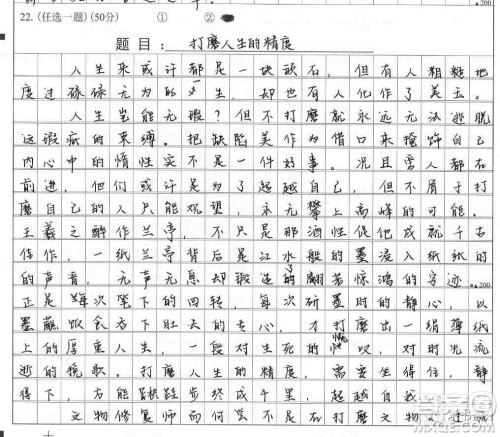 22.(任选一题)(50分) ① ②
题目：打磨人生的精度
人生来或许都是一块顽石，但有人粗糙地
度过碌碌无为的一生，却也有人化作了美玉。
人生岂能无瑕？但不打磨就永远无法逃脱
这瑕疵的束缚。把缺陷美作为借口来掩饰自己
内心中的惰性实不是一件好事。况且旁人都在
前进，他们或许是为了超越自己，但不屑于打
磨自己的人只能观望，永无攀上高峰的可能。
王羲之醉作兰亭，不只是那酒性促他成就千古
佳作，一纸兰亭背后是江水般的墨浸入纸纸的
的声音，无声无息却锻造了翩若惊鸿的字迹。
正是每次坠下的回转，每次研墨时的静心，以
墨蘸饭食吞下肚去的专心，才打磨出一绢薄纸
上的厚重人生，一段对生死的慨叹，对时光流
逝的挽歌。打磨人生的精度，需要坐得住，静
得下，方能跬步终成千里，超越自我。
文物修复师而何尝不是在打磨文物
200